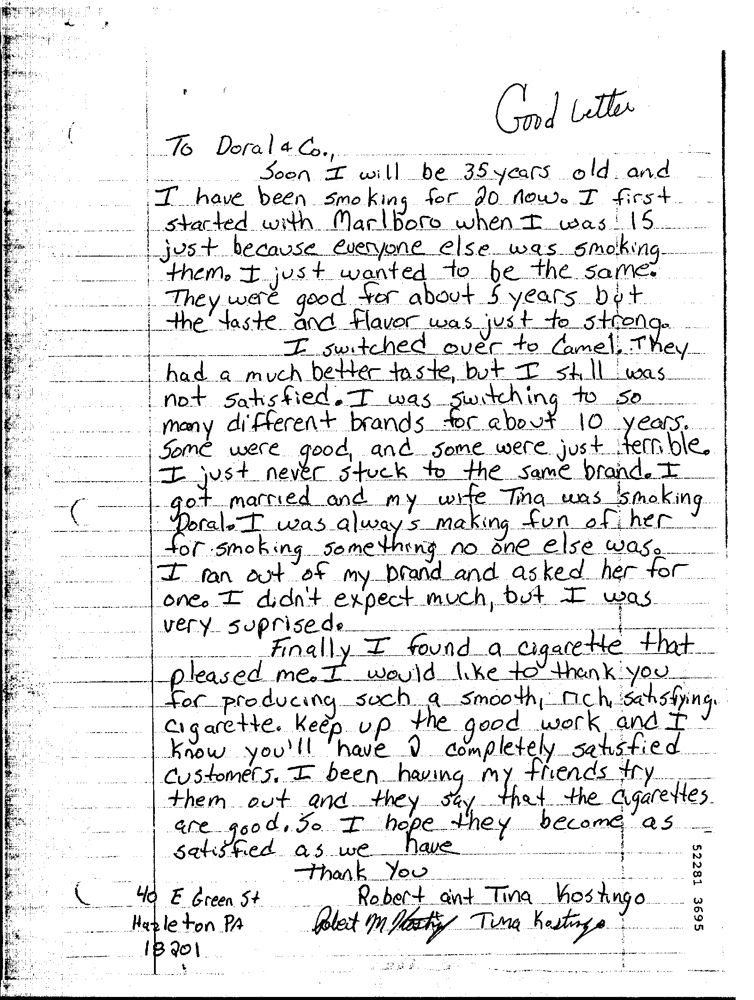 Good Letter
To Doral & Co.,
Soon I will be 35 years old and
I have been smoking for 20 now. I first
started with Marlboro when I was 15
just because everyone else was smoking
them. I just wanted to be the same.
They were good for about 5 years but
the taste and flavor was just to strong.
I switched over to Camel. They
had a much better taste, but I still was
not satisfied. I was switching to so
many different brands for about 10 years.
Some were good, and some were just terrible.
I just never stuck to the same brand. I
got married and my wife Tina was smoking
Doral. I was always making fun of her
for smoking something no one else was.
I ran out of my brand and asked her for
one. I didn't expect much, but I was
very suprised.
Finally I found a cigarette that
pleased me. I would like to thank you
for producing such a smooth, rich, satisfying.
cigarette. Keep up the good work and I
know you'll have 2 completely satisfied
customers. I been having my friends try
them out and they say that the cigarettes
are good. So I hope they become as
satisfied as we have
Thank You
40 E Green St Robert and Tina Kostingo
Hazleton PA Robert M Tina Kostingo
18201
52281 3695